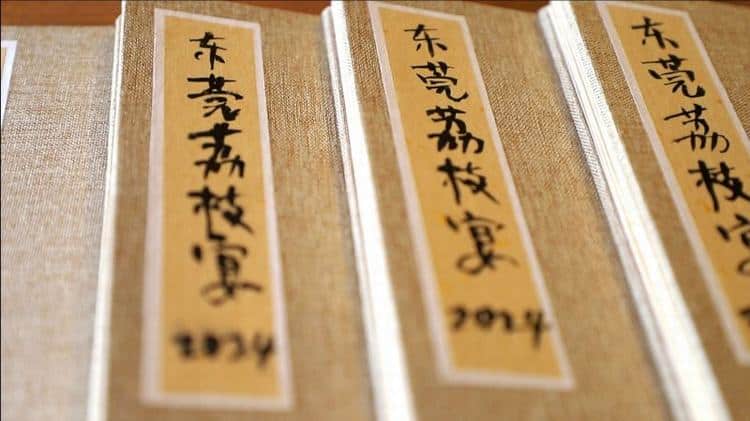 东莞荔枝宴
2024
东莞荔枝宴
2024
东莞荔枝宴